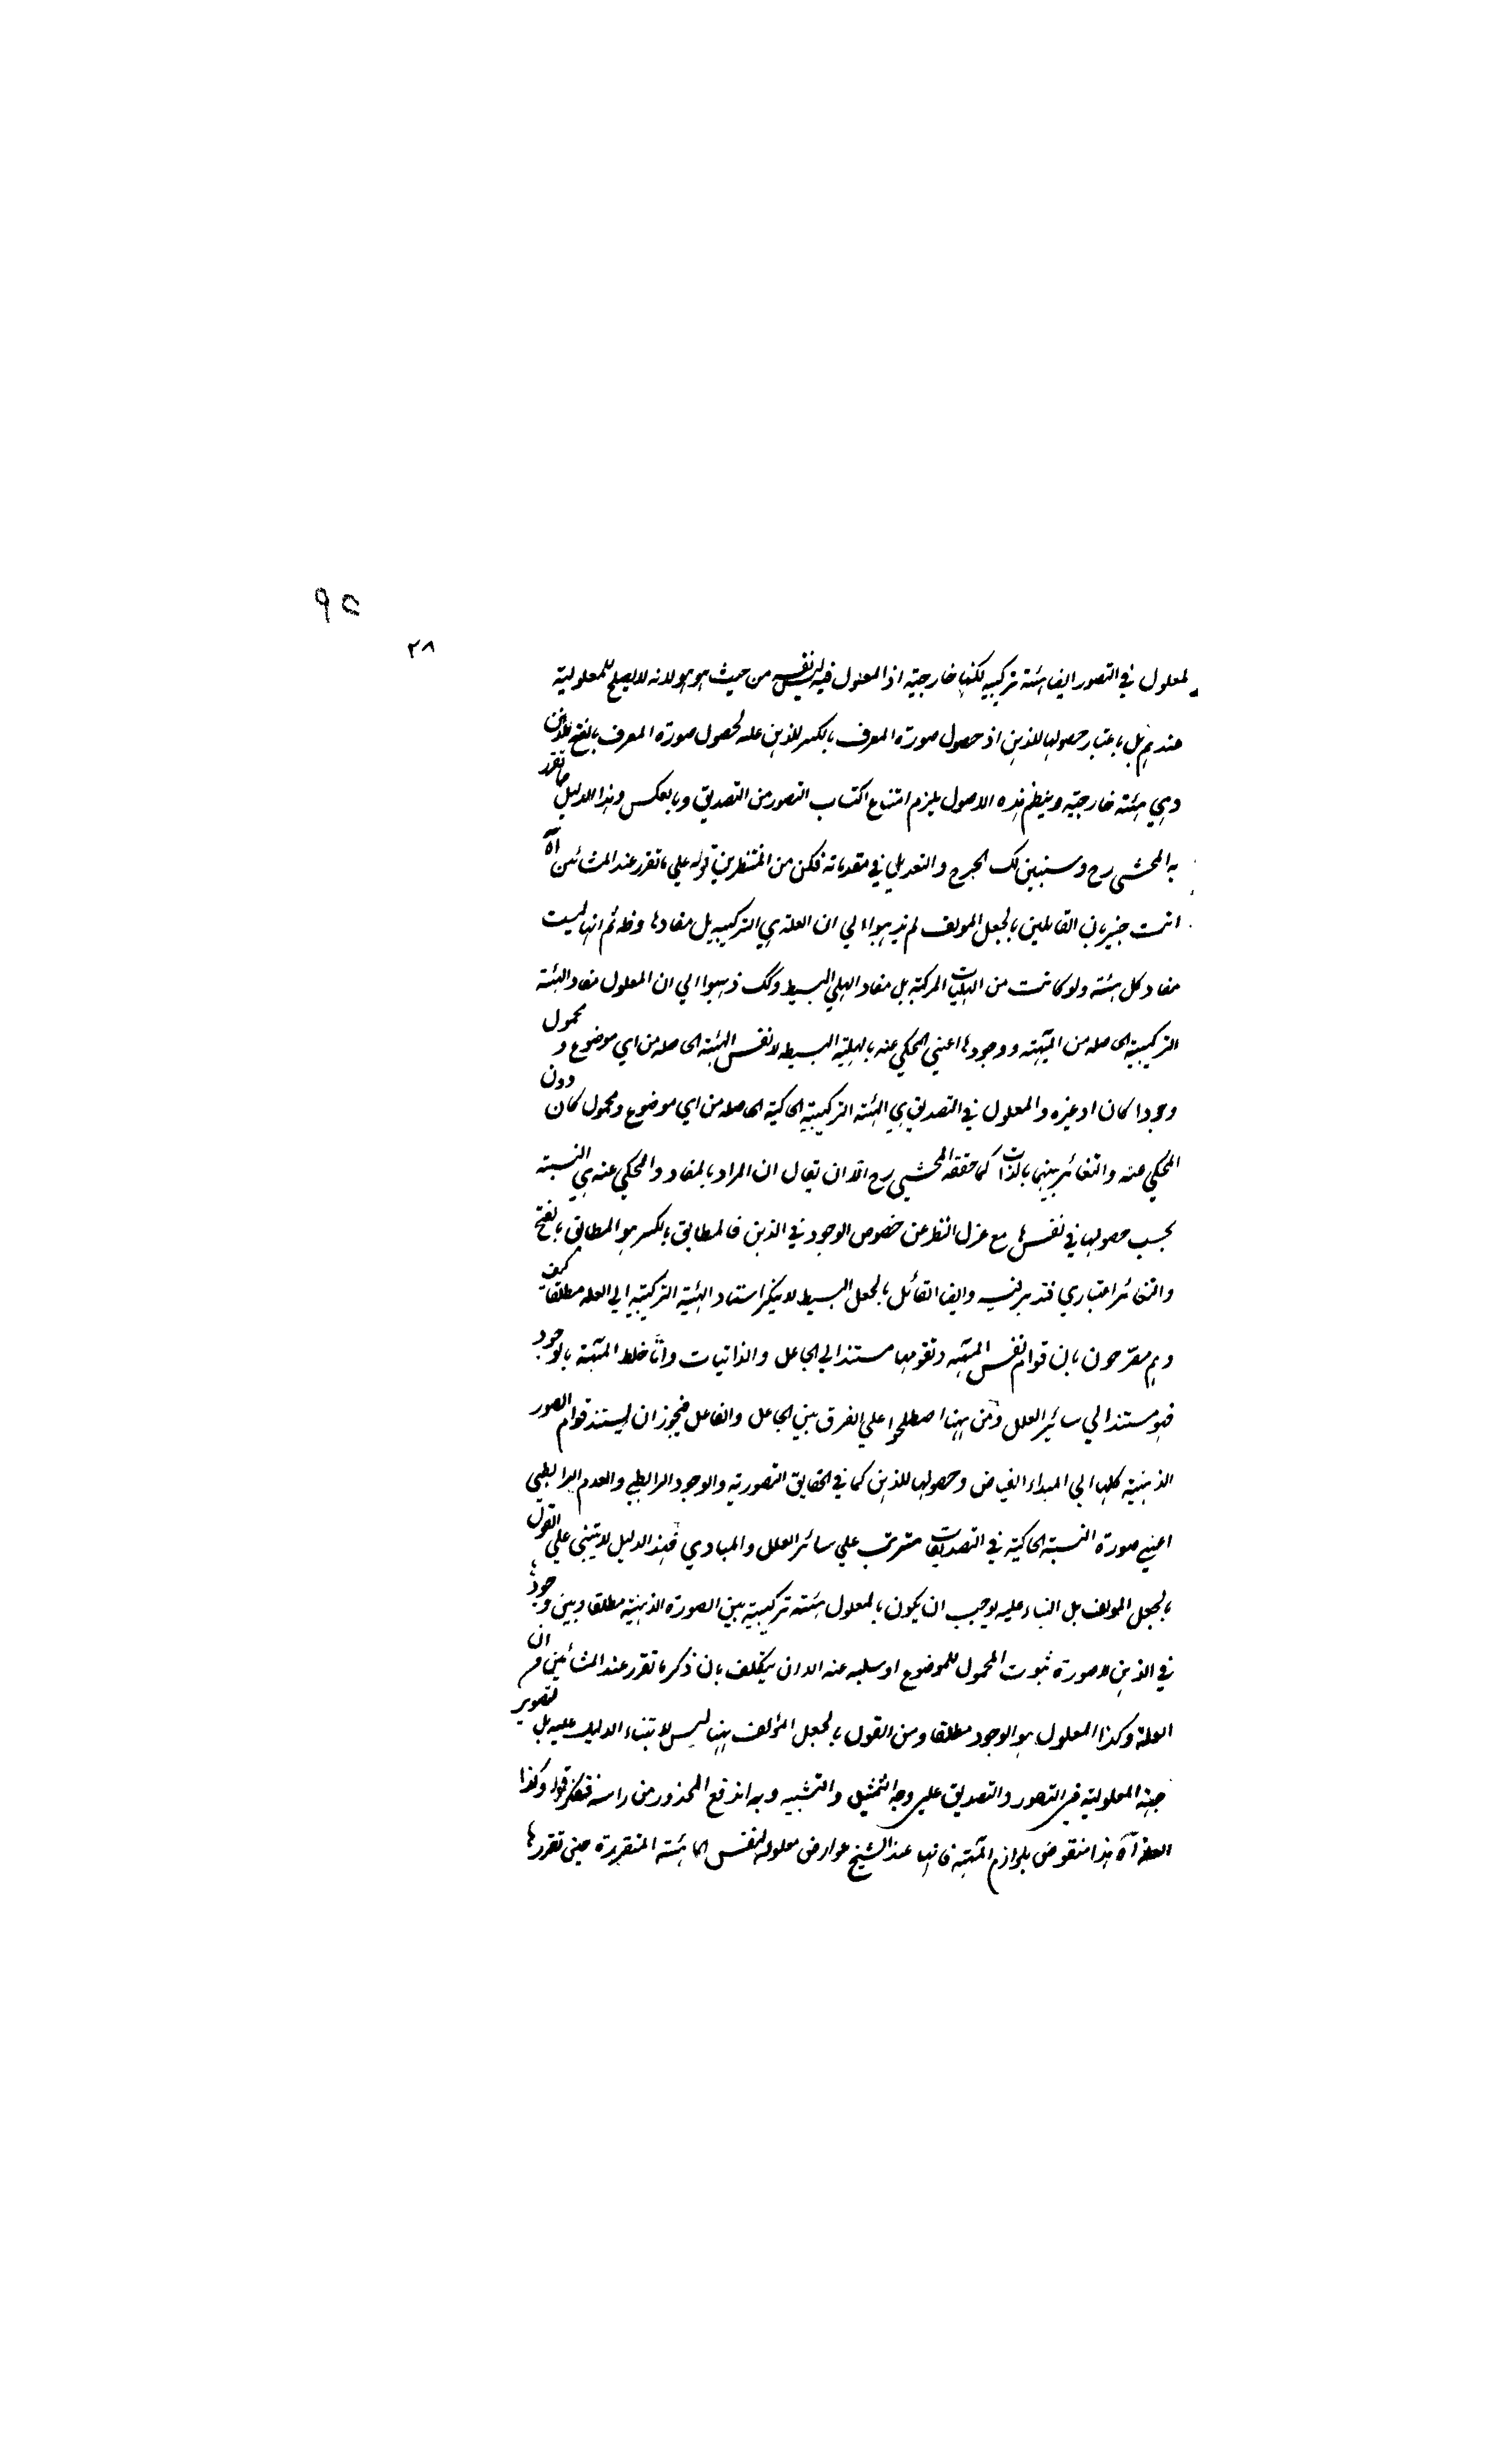 ٩٥
٢٨
لمعلول في التصور ايضا هيئة تركيبية لكنها خارجية اذ المعلول فيه ليس نفسه من حيث هو هو لانه لا يصلح للمعلولية
عندهم بل باعتبار حصولها للذهن اذ حصول صورة المعرف بالكسر للذهن علة لحصول صورة المعرف بالفتح للذهن
وهي هيئة خارجية وبنظم هذه الاصول يلزم امتناع اكتساب التصور من التصديق وبالعكس وهذا الدليل ما تفرد
به المحشي رح وسنبين لك الجرح والتعديل في مقدماته فكن من المنتظرين قوله علي ما تقرر عند المشائين آه
انت خبير بان القائلين بالجعل المولف لم يذهبوا الي ان العلة هي التركيبية بل مفادها وظ ثم انها ليست
مفاد كل هيئة ولو كانت من الهليات المركبة بل مفاد الهلي البسيط وكك ذهبوا الي ان المعلول مفاد الهيئة
التركيبية الحاصلة من المهية ووجودها اعني المحكي عنه بالهلية البسيطة لا نفس الهيئة الحاصلة من اي موضوع و محمول
وجودا كان او غيره والمعلول في التصديق هي الهيئة التركيبية الحاكية الحاصلة من اي موضوع ومحمول كان دون
المحكي عنه والتغائر بينهما بالذات كما حققه المحشي رح الا ان يقال ان المراد بالمفاد والمحكي عنه هي النسبة
بحسب حصولها في نفسها مع عزل النظر عن خصوص الوجود في الذهن فالمطابق بالكسر هو المطابق بالفتح
والتغائر اعتباري فتدبر فيه وايضا القائل بالجعل البسيط لا ينكر استناد الهيئة التركيبية الي العلة مطلقا كيف
وهم مصرحون بان قوام نفس المهية وتقومها مستند الي الجاعل والذاتيات واما خلط المهية بالوجود
فهو مستند الي سائر العلل ومن ههنا اصطلحوا علي الفرق بين الجاعل والفاعل فيجوز ان يستند قوام الصور
الذهنية كلها الي المبداء الفياض وحصولها للذهن كما في الحقايق التصورية والوجود الرابطي والعدم الرابطي
اعني صورة النسبة الحاكية في التصديقات مترتب علي سائر العلل والمبادي فهذا الدليل لا يبتني علي القول
بالجعل المولف بل البناء عليه يوجب ان يكون المعلول هيئة تركيبية بين الصورة الذهنية مطلقا وبين وجودها
في الذهن لا صورة ثبوت المحمول للموضوع او سلبه عنه الا ان يتكلف بان ذكر ما تقرر عند المشائين من ان
العلة وكذا المعلول هو الوجود مطلقا ومن القول بالجعل المؤلف ههنا ليس لابتناء الدليل عليه بل لتصوير
جهة المعلولية في التصور والتصديق علي وجه التمثيل والتشبيه وبه اندفع المحذور من راسه فتفكر قوله وكذا
العلة آه هذا منقوض بلوازم المهية فانها عند الشيخ عوارض معلولة لنفس الماهية المتقررة حين تقررها